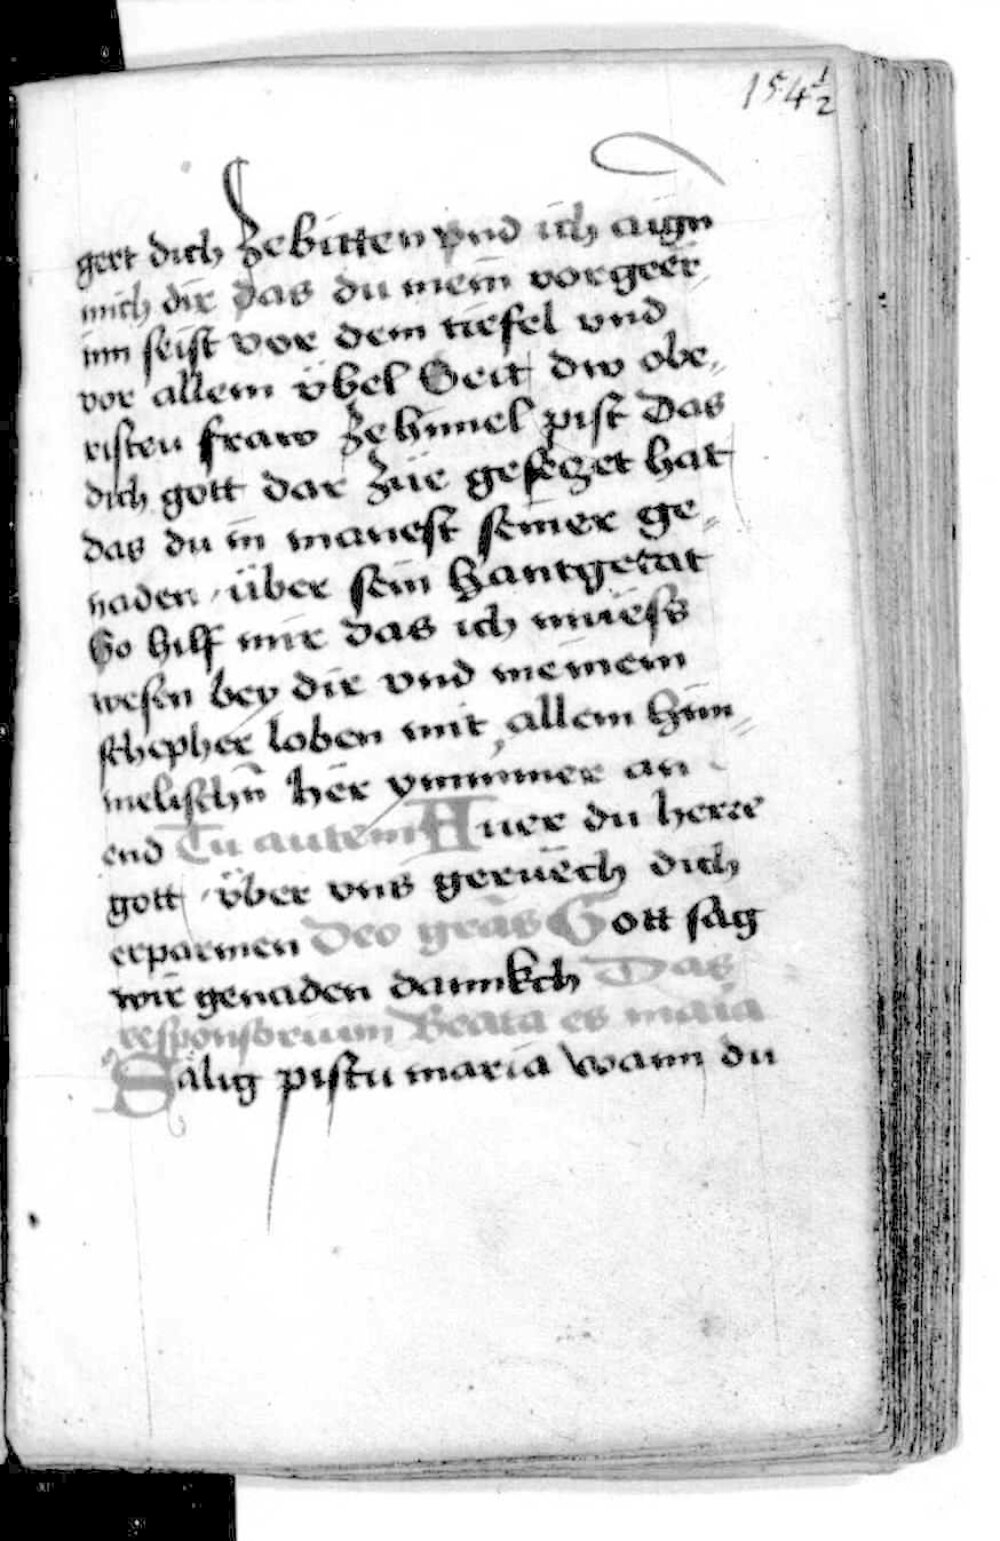 154 1/2
gert dich ze bitten vnd ich aign
mich dir das du mein vorgeer
inn seist vor dem tiefel vnd
vor allem übel Seit dw obe„
risten fraw ze himel pist Das
dich gott dar züe geseczet hat
das du in manest seiner ge„
naden über sein hantgetat
So hilf mir das ich müess
wesen bey dir vnd meinem
schepher loben mit allem him„
melischn̄ hër vnnmmer an
end Tu autem Auer du herre
gott über vns gerüech dich
erparmen Deo gra͞s Gott säg
wir genaden dannkch Das
responsorium Beata es maia
Sälig pistu maria wann du